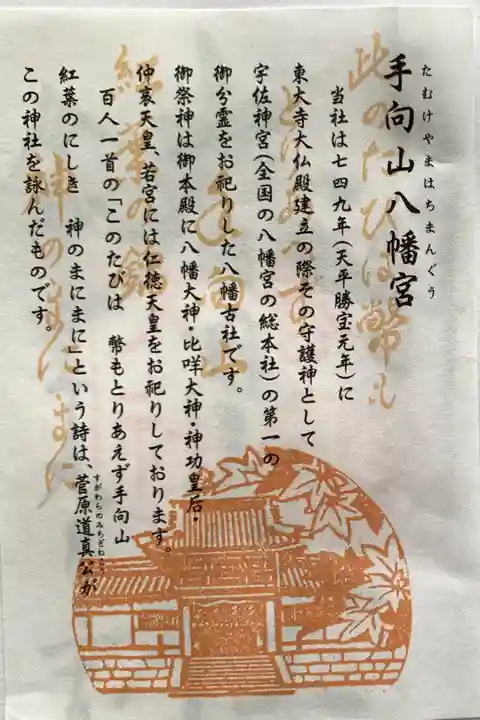 手向山八幡宮
たむけやまはちまんぐう
当社は七四九年(天平勝宝元年)に
東大寺大仏殿建立の際その守護神として
宇佐神宮(全国の八幡宮の総本社)の第一の
御分霊をお祀りした八幡古社です。
御祭神は御本殿に八幡大神・比咩大神・神功皇后・
仲哀天皇、若宮には仁徳天皇をお祀りしております。
百人一首の「このたびは 幣もとりあえず手向山
紅葉のにしき 神のまにまに」という詩は、菅原道真公が
すがわらのみちざねこう
この神社を詠んだものです。
此のたびは幣も
とりあへず
手向山
紅葉の錦
神のまにまに